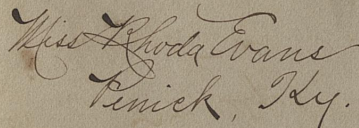 Miss Rhoda Evans
Penick, Ky.